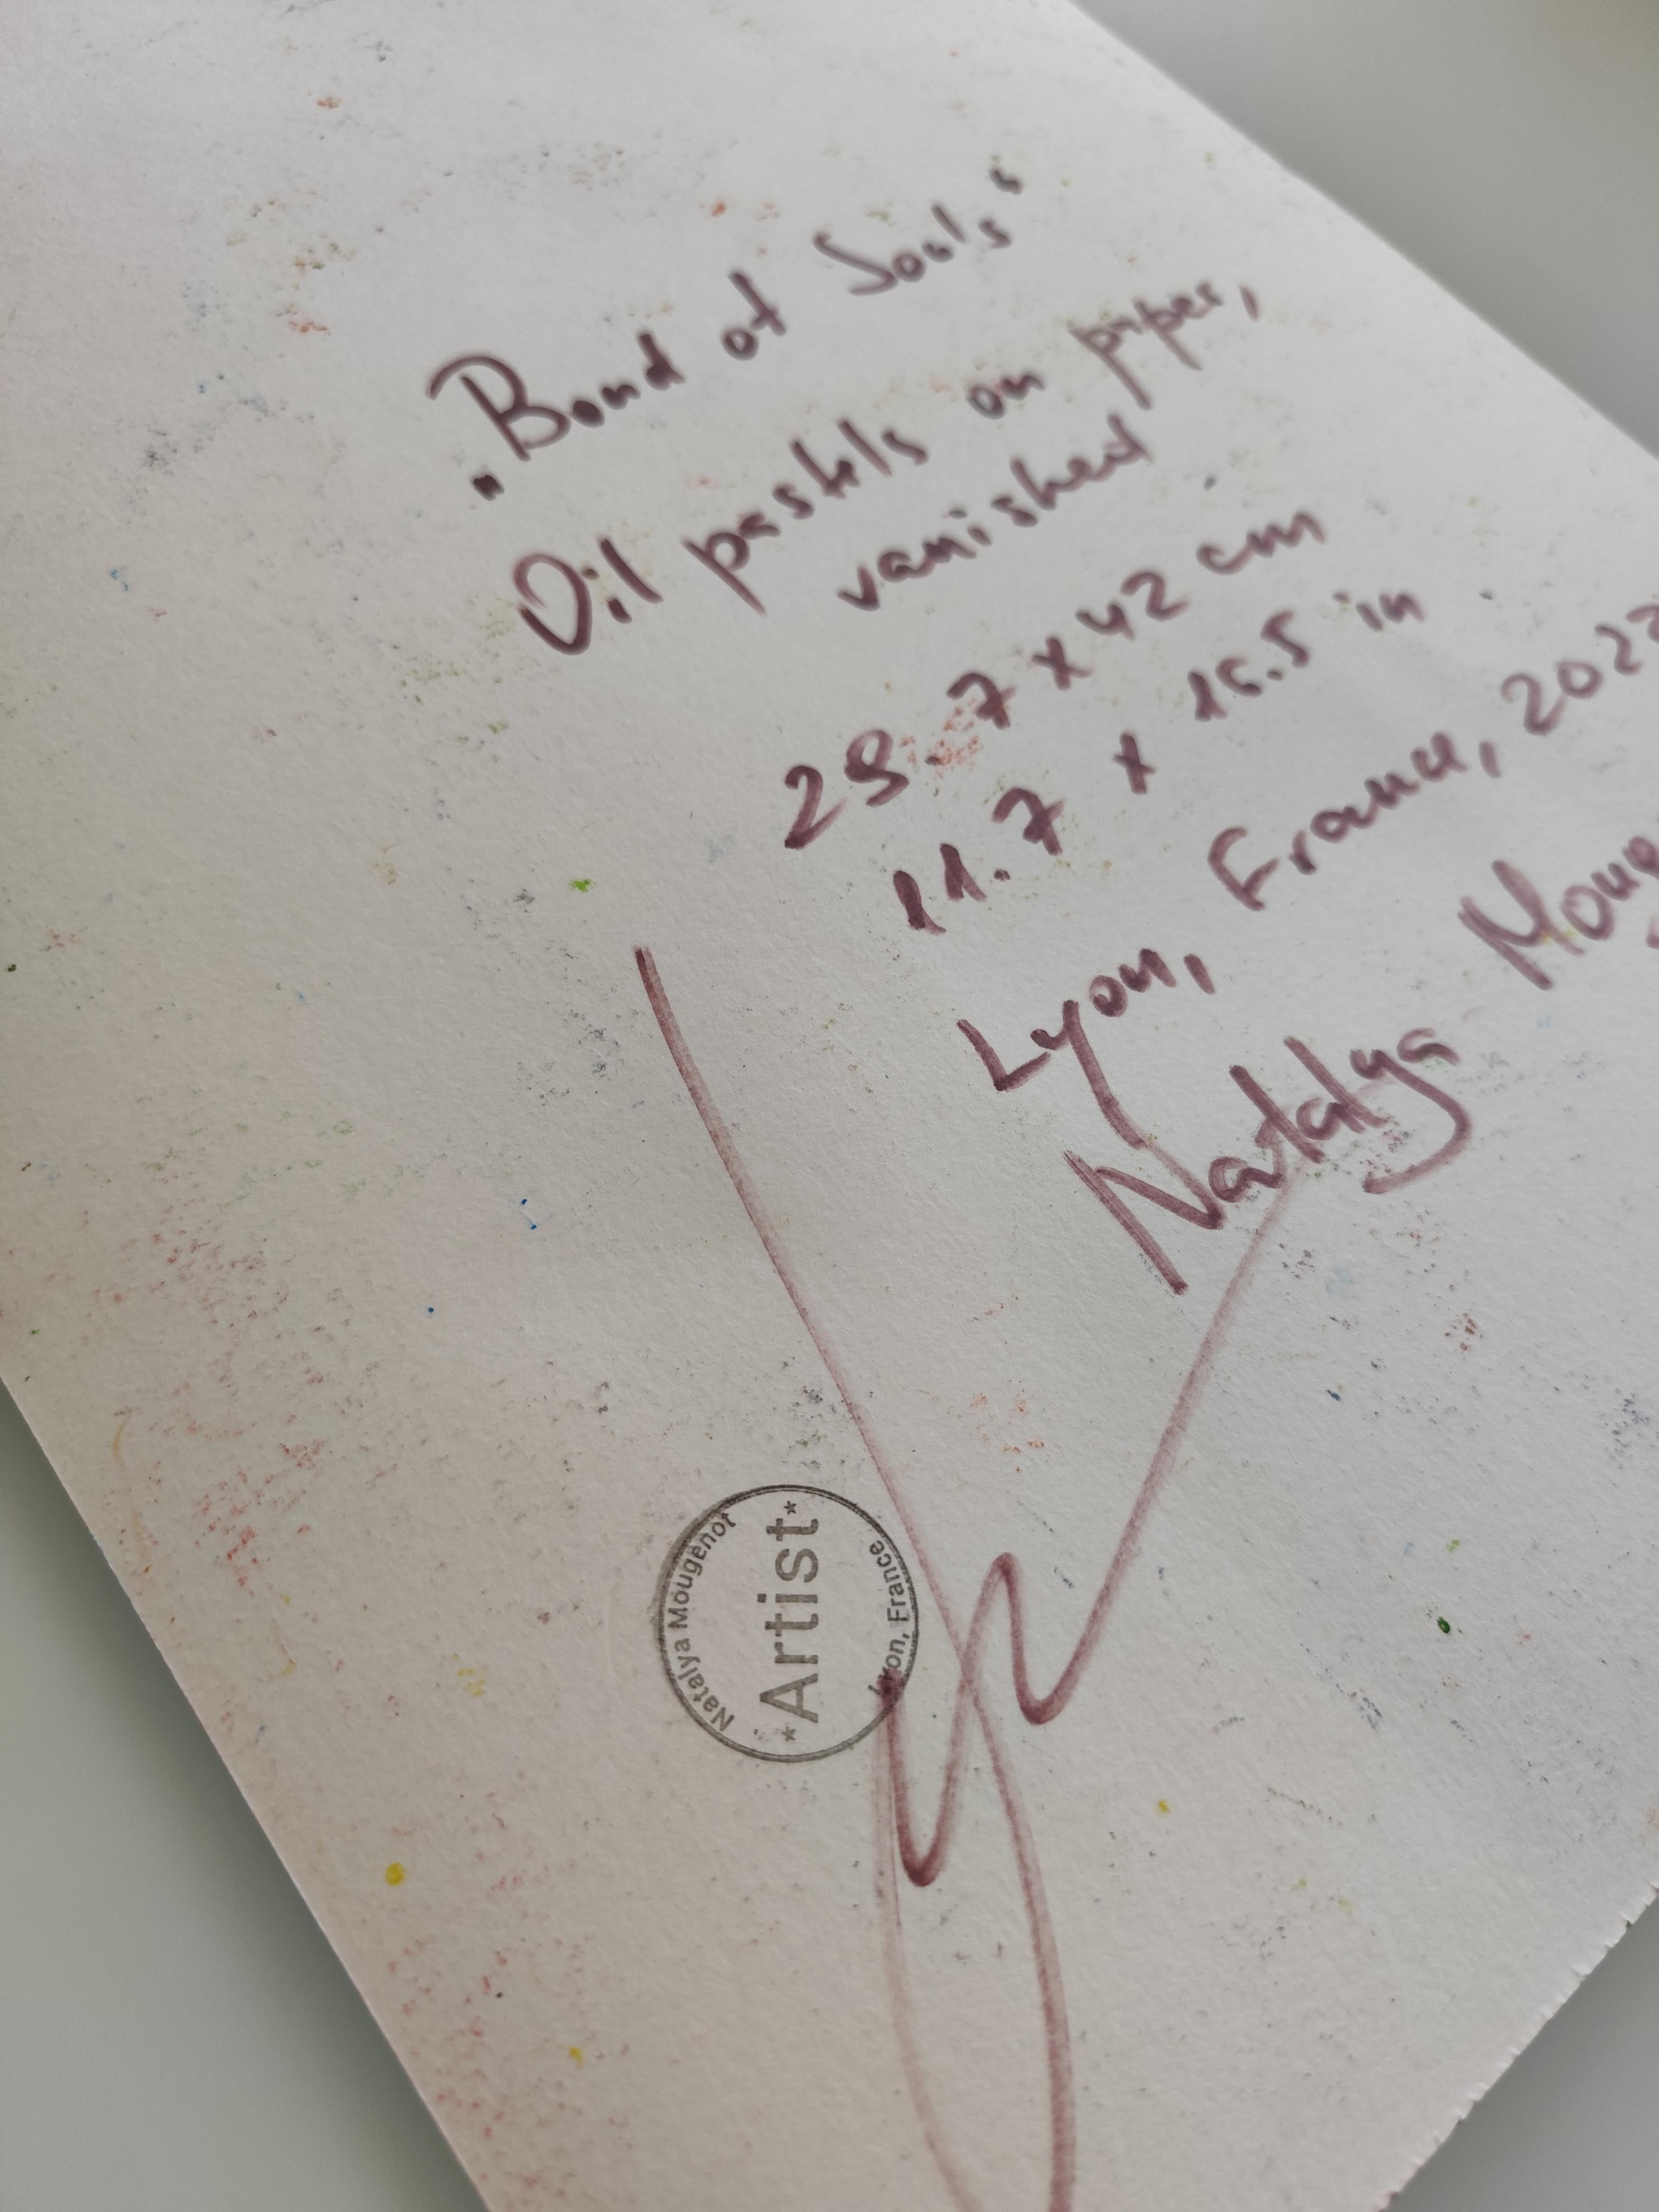 „Bond of Souls"
Oil pastels on paper,
vanished
29.7 x 42 cm
11.7 x 16.5 in
Lyon, France,
Natalya
Natalya Mougenot
*Artist*
Lyon, France